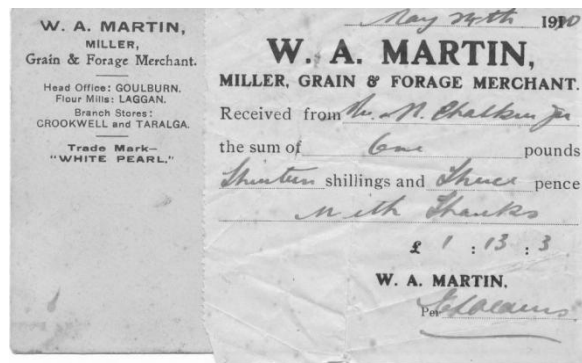 W. A. MARTIN,
MILLER,
Grain & Forage Merchant.
Head Office: GOULBURN.
Flour Mills: LAGGAN.
Branch Stores:
CROOKWELL and TARALGA.
Trade Mark—
"WHITE PEARL."
May 24th 1910
W. A. MARTIN,
MILLER, GRAIN & FORAGE MERCHANT.
Received from Mr. N. Chalker Jnr
the sum of One pounds
Thirteen shillings and Three pence
With Thanks
£ 1 : 13 : 3
W. A. MARTIN.
Per